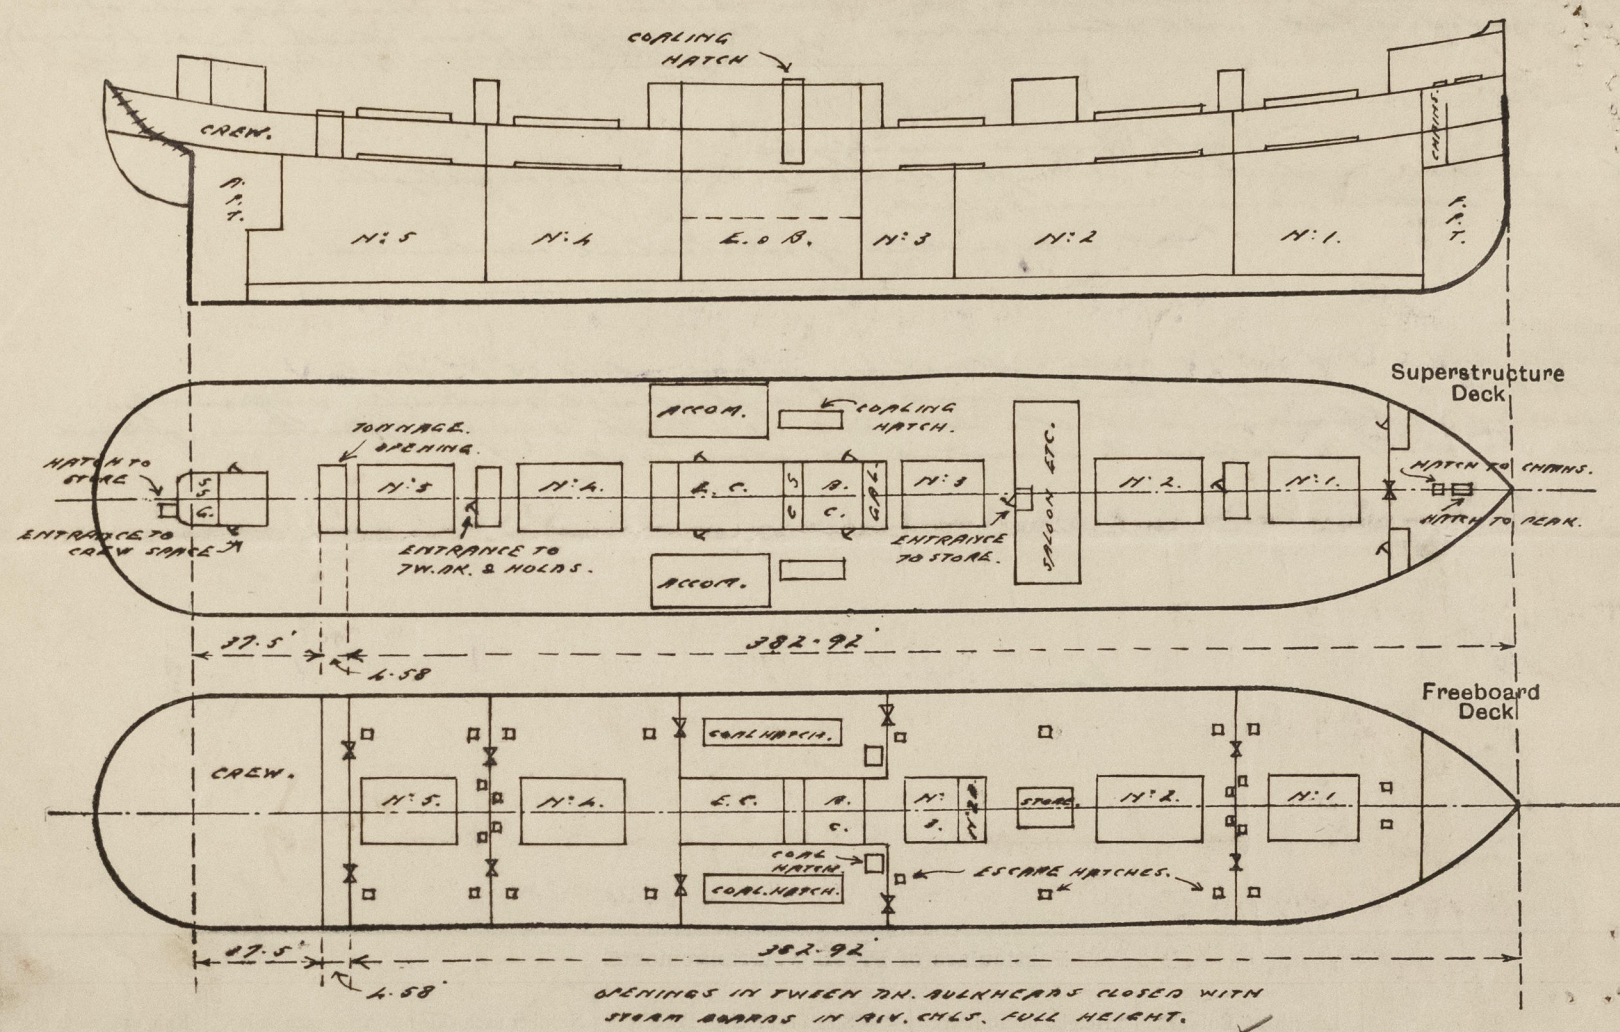 COALING
HATCH
CREW.
CHAINS.
A.
P.
T.
F.
P.
T.
Nº 5
Nº 4
E. & B.
Nº 3
Nº 2
Nº 1.
Superstructure
Deck
ACCOM.
COALING
HATCH.
TONNAGE.
OPENING.
HATCH TO
STORE
S.G.
G.
Nº 5
Nº 4.
E. C.
C S
B.
C.
GAL.
Nº 3
SALOON ETC.
Nº 2.
Nº 1.
HATCH TO CHAINS.
HATCH TO PEAK.
ENTRANCE TO
CREW SPACE
ENTRANCE TO
TW. DK. & HOLDS.
ENTRANCE
TO STORE.
ACCOM.
37.5'
382.92'
4.58
Freeboard
Deck
COAL HATCH.
CREW.
Nº 5.
Nº 4.
E. C.
B.
C.
Nº
3.
Nº 2B.
STORE.
Nº 2.
Nº 1
COAL
HATCH
COAL HATCH.
ESCAPE HATCHES.
37.5'
382.92'
4.58'
OPENINGS IN TWEEN DK. BULKHEADS CLOSED WITH
STORM BOARDS IN RIV. CHLS. FULL HEIGHT.